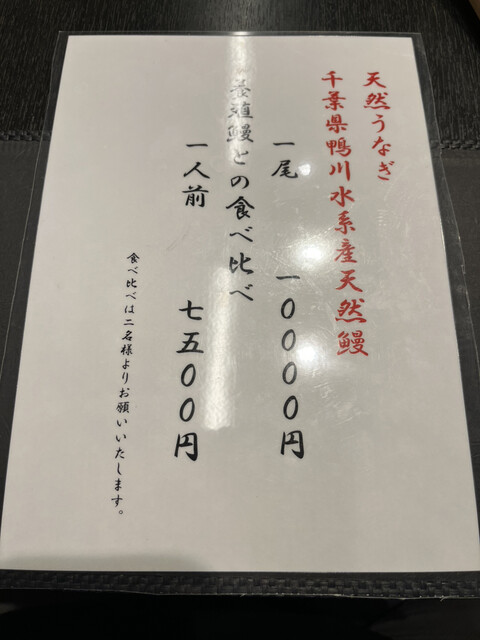 天然うなぎ
千葉県鴨川水系産天然鰻
一尾 一〇〇〇〇円
養殖鰻との食べ比べ
一人前 七五〇〇円
食べ比べは二名様よりお願いいたします。